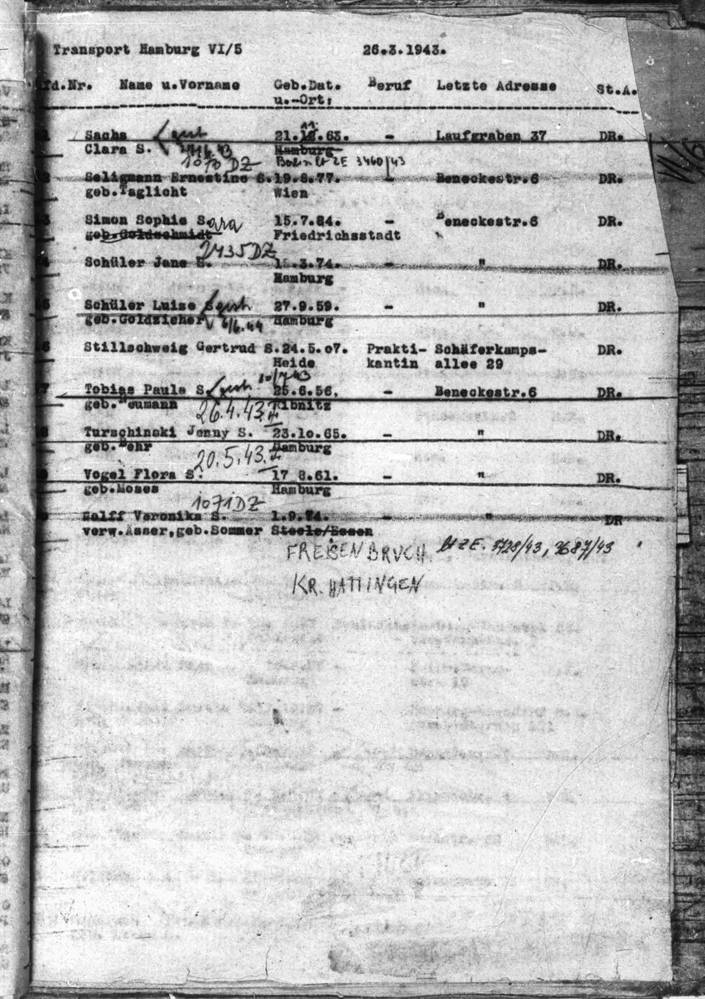 Transport Hamburg VI/5 26.3.1943.
fd.Nr. Name u.Vorname Geb.Dat. Beruf Letzte Adresse St.A.
u.-Ort:
1 Sachs gest 21. 65. - Laufgraben 37 DR.
Clara S. Hamburg
1070 DZ Bln Et ZE 3460/43
2 Seligmann Ernestine S. 19.8.77. - Beneckestr.6 DR.
geb.Taglicht Wien
3 Simon Sophie Sara 15.7.84. - Beneckestr.6 DR.
geb.Goldschmidt Friedrichsstadt
2435 DZ
4 Schüler Jane 3.74. - " DR.
Hamburg
5 Schüler Luise gest 27.9.59. - " DR.
geb.Goldzieher 6/6.44 Hamburg
6 Stillschweig Gertrud S. 24.5.07. Prakti- Schäferkamps- DR.
Heide kantin allee 29
7 Tobias Paula S. gest 25.6.56. - Beneckestr.6 DR.
geb.Neumann 26.4.43. Ribnitz
8 Turschinski Jenny S. 23.10.65. - " DR.
geb.Behr 20.5.43. Hamburg
9 Vogel Flora S. 17 8.61. - " DR.
geb.Moses Hamburg
1071 DZ
Wolff Veronika S. 1.9.74. - " DR
verw.Asser,geb.Sommer Steele/Essen
FREISENBRUCH Et ZE. 3728/43, 3687/43
KR. HATTINGEN